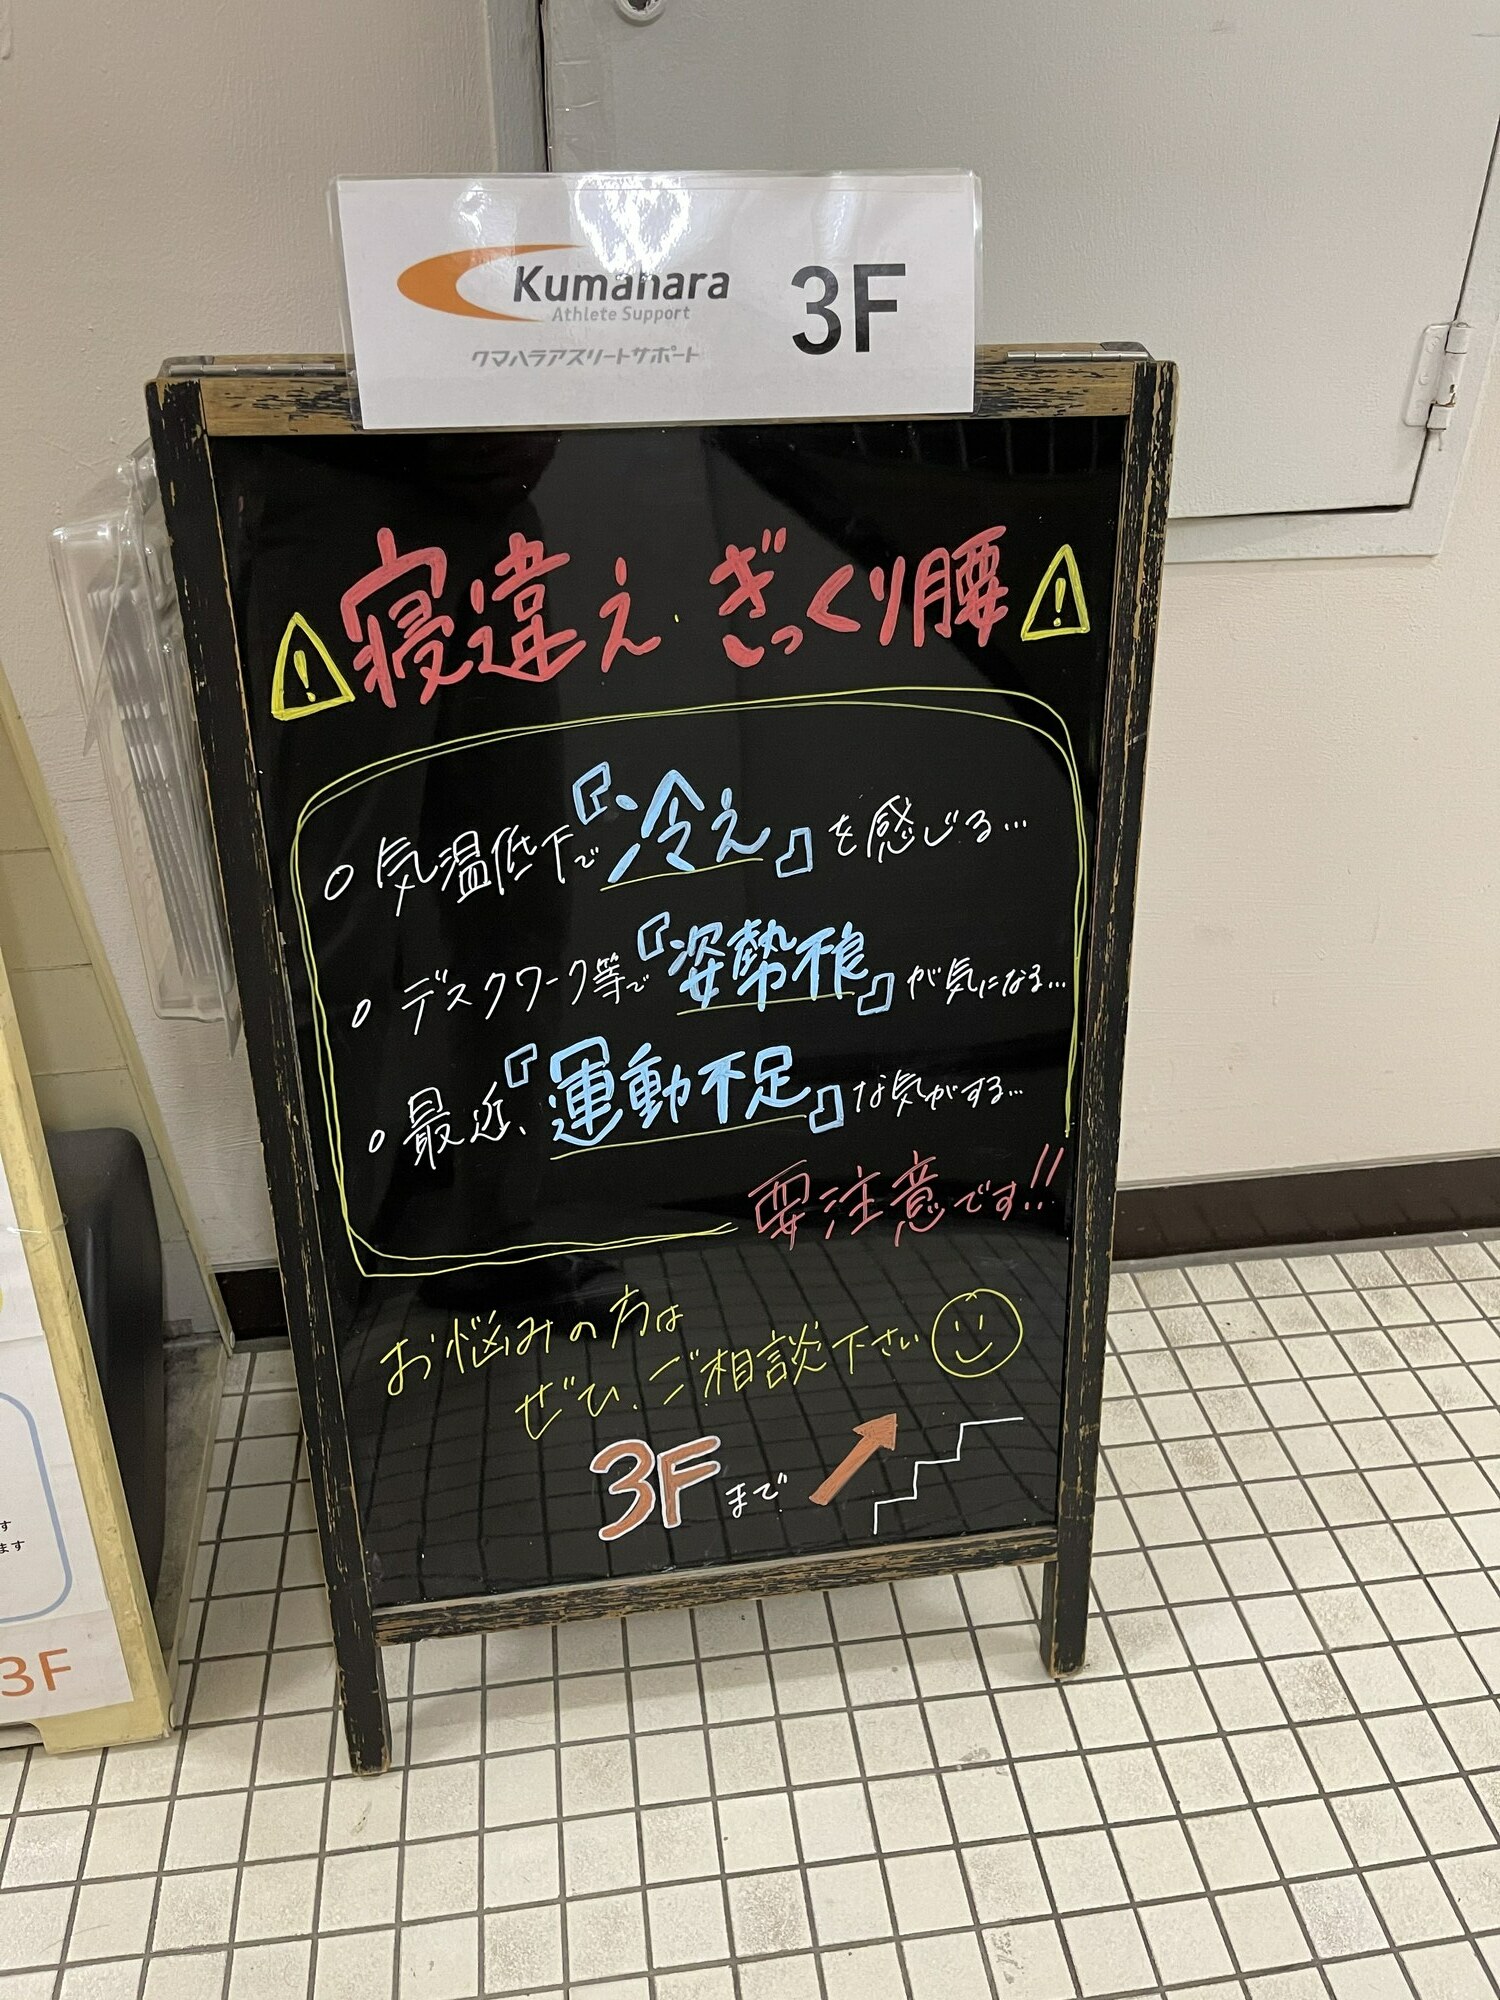 Kumahara
3F
Athlete Support
クマハラアスリートサポート
寝違え・ぎっくり腰
○ 気温低下で『冷え』を感じる…
○ デスクワーク等で『姿勢不良』が気になる…
○ 最近、『運動不足』な気がする…
要注意です!!
お悩みの方は
ぜひ、ご相談下さい
3Fまで
す
ます
3F